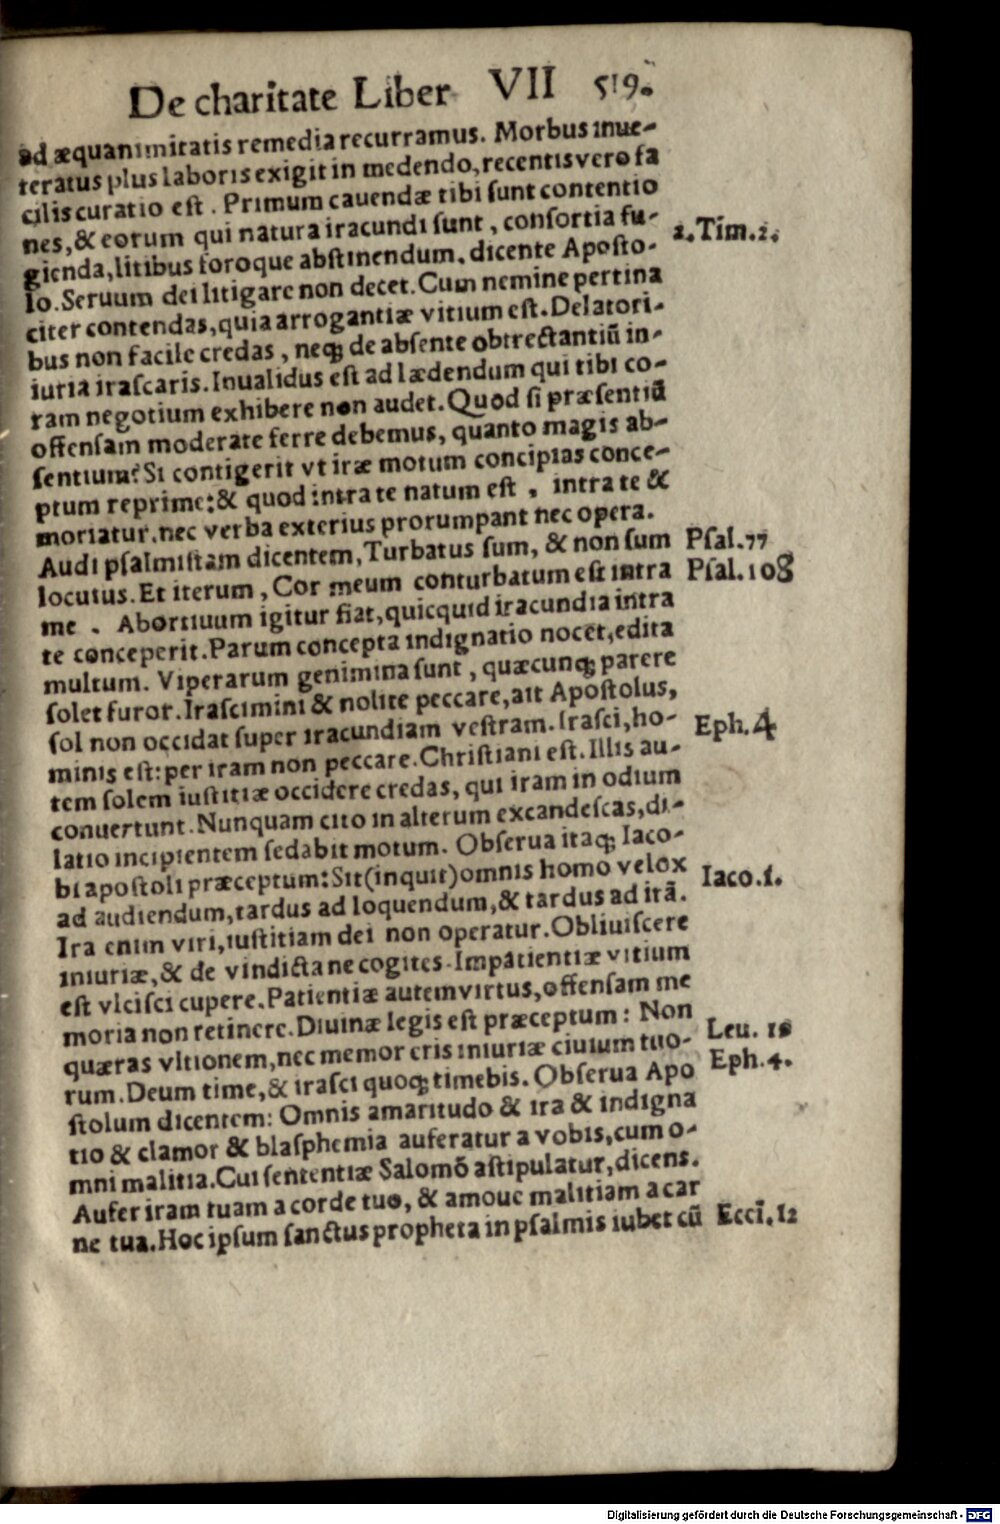 De charitate Liber VII 519.
ad æquanimitatis remedia recurramus. Morbus inue-
teratus plus laboris exigit in medendo, recentis vero fa
cilis curatio est. Primum cauendæ tibi sunt contentio
nes, & eorum qui natura iracundi sunt, consortia fu-
gienda, litibus foroque abstinendum, dicente Aposto-
lo. Seruum dei litigare non decet. Cum nemine pertina
citer contendas, quia arrogantiæ vitium est. Delatori-
bus non facile credas, neq; de absente obtrectantiũ in-
iuria irascaris. Inualidus est ad lædendum qui tibi co-
ram negotium exhibere non audet. Quod si præsentiũ
offensam moderate ferre debemus, quanto magis ab-
sentium? Si contigerit vt iræ motum concipias conce-
ptum reprime: & quod intra te natum est, intra te &
moriatur, nec verba exterius prorumpant nec opera.
Audi psalmistam dicentem, Turbatus sum, & non sum
locutus. Et iterum, Cor meum conturbatum est intra
me. Abortiuum igitur fiat, quicquid iracundia intra
te conceperit. Parum concepta indignatio nocet, edita
multum. Viperarum genimina sunt, quæcunq; parere
solet furor. Irascimini & nolite peccare, ait Apostolus,
sol non occidat super iracundiam vestram. Irasci, ho-
minis est: per iram non peccare. Christiani est. Illis au-
tem solem iustitiæ occidere credas, qui iram in odium
conuertunt. Nunquam cito in alterum excandescas, di-
latio incipientem sedabit motum. Obserua itaq; Iaco-
bi apostoli præceptum: Sit (inquit) omnis homo velox
ad audiendum, tardus ad loquendum, & tardus ad irã.
Ira enim viri, iustitiam dei non operatur. Obliuiscere
iniuriæ, & de vindicta ne cogites. Impatientiæ vitium
est vlcisci cupere. Patientiæ autem virtus, offensam me
moria non retinere. Diuinæ legis est præceptum: Non
quæras vltionem, nec memor eris iniuriæ ciuium tuo-
rum. Deum time, & irasci quoq; timebis. Obserua Apo
stolum dicentem: Omnis amaritudo & ira & indigna
tio & clamor & blasphemia auferatur a vobis, cum o-
mni malitia. Cui sententiæ Salomõ astipulatur, dicens.
Aufer iram tuam a corde tuo, & amoue malitiam a car
ne tua. Hoc ipsum sanctus propheta in psalmis iubet cũ
2. Tim. 2.
Psal. 77
Psal. 108
Eph. 4
Iaco. 1.
Leu. 19
Eph. 4.
Eccl. 12
Digitalisierung gefördert durch die Deutsche Forschungsgemeinschaft - DFG